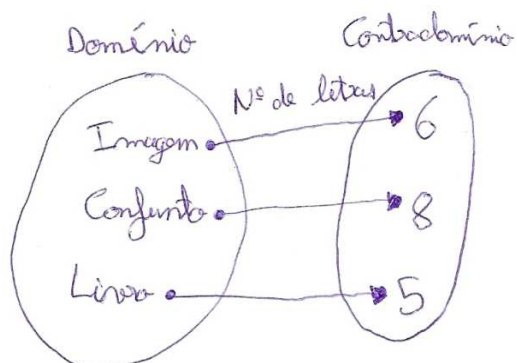 Domínio
Contradomínio
Nº de letras
Imagem
6
Conjunto
8
Livro
5